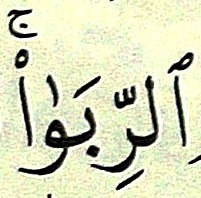 ٱلرِّبَوٰا۟ ۚ